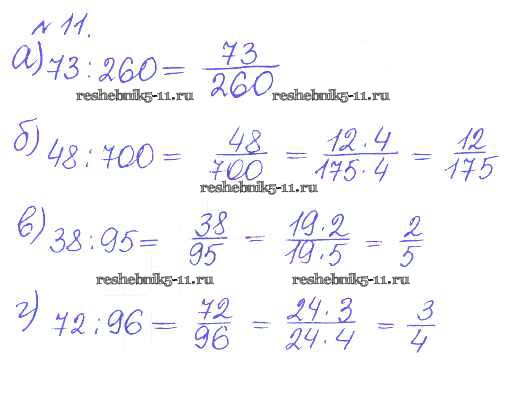 № 11.
а) 73 : 260 = 73/260
reshebnik5-11.ru reshebnik5-11.ru
б) 48 : 700 = 48/700 = 12·4/175·4 = 12/175
reshebnik5-11.ru
в) 38 : 95 = 38/95 = 19·2/19·5 = 2/5
reshebnik5-11.ru reshebnik5-11.ru
г) 72 : 96 = 72/96 = 24·3/24·4 = 3/4